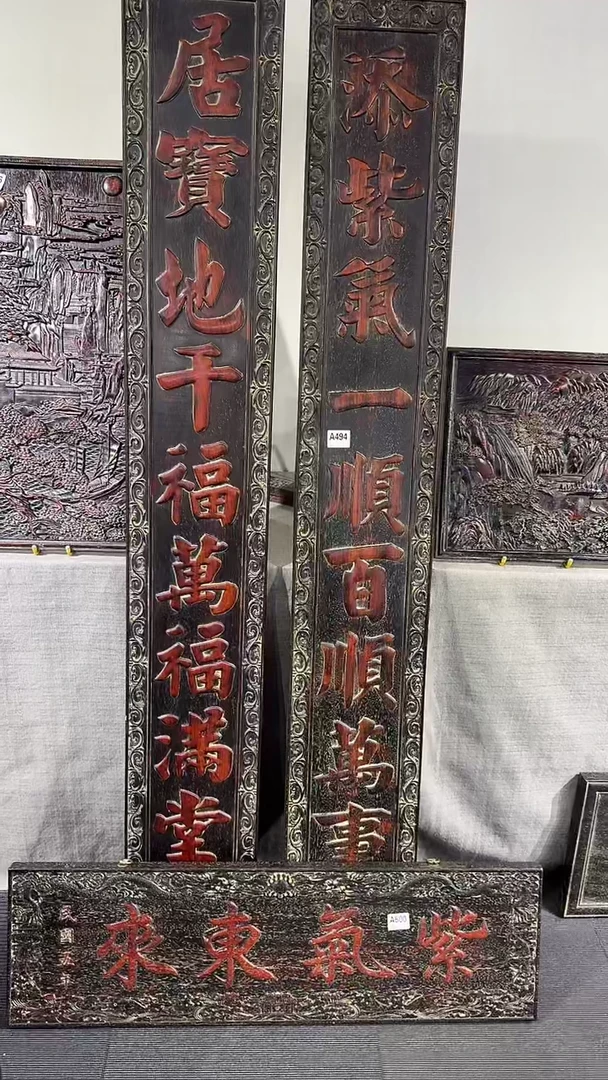 添紫氣一順百順萬事
居寶地千福萬福滿堂
A494
紫氣東來
A500
民國